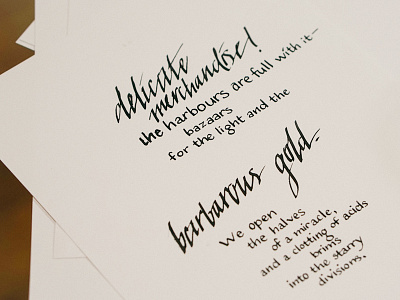 delicate
merchandise!
the harbours are full with it—
bazaars
for the light and the
barbarous gold.
We open
the halves
of a miracle,
and a clotting of acids
brings
into the starry
divisions.